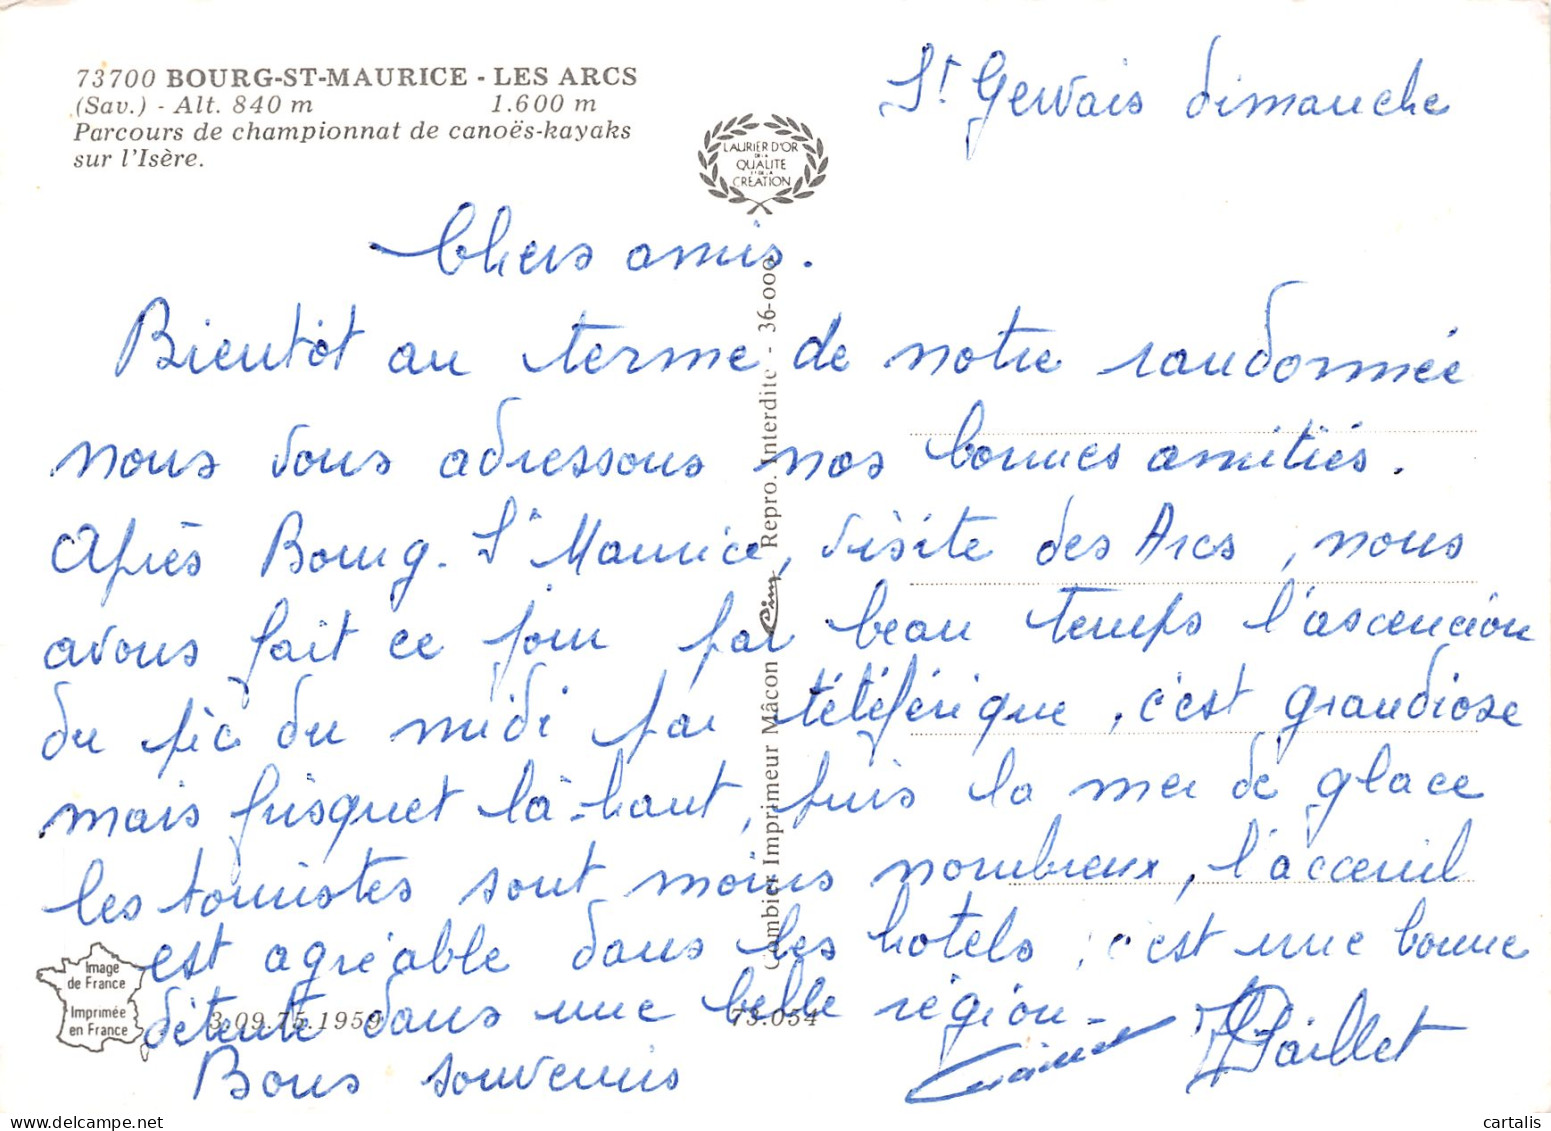 73700 BOURG-ST-MAURICE - LES ARCS
(Sav.) - Alt. 840 m 1.600 m
Parcours de championnat de canoës-kayaks
sur l'Isère.
LAURIER D'OR
DE LA
QUALITE
ET DE LA
CREATION
St Gervais dimanche
Chers amis.
Bientôt au terme de notre randonnée
nous vous adressons nos bonnes amitiés.
Après Bourg. St Maurice, visite des Arcs, nous
avons fait ce jour par beau temps l'ascencion
du pic du midi par téléférique, c'est grandiose
mais frisquet là-haut, puis la mer de glace
les touristes sont moins nombreux, l'acceuil
est agréable dans les hotels, c'est une bonne
détente dans une belle région -
Bons souvenirs
Paillet
Combier Imprimeur Mâcon Cim Repro. Interdite - 36-000
Image
de France
Imprimée
en France
3.09.75.1959
73.054
cartalis